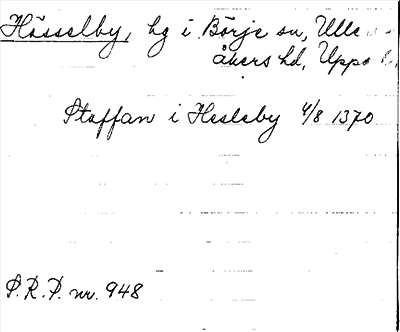 Hässelby, hg i Börje sn, Ulle
åkers hd, Upps
Staffan i Hesleby 4/8 1370
S.R.P. nr. 948